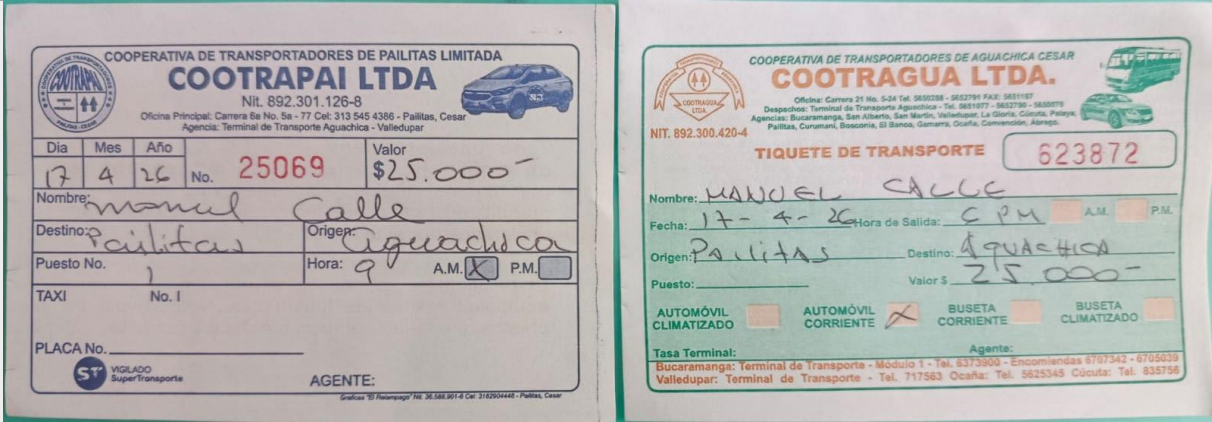 COOPERATIVA DE TRANSPORTADORES DE PAILITAS LIMITADA
COOTRAPAI LTDA
Nit. 892.301.126-8
Oficina Principal: Carrera 6a No. 5a - 77 Cel: 313 545 4386 - Pailitas, Cesar
Agencia: Terminal de Transporte Aguachica - Valledupar
COOTRAPAI
PAILITAS - CESAR
Dia Mes Año
17 4 26 No. 25069
Valor
$25.000-
Nombre: Manuel Calle
Destino: Pailitas Origen: Aguachica
Puesto No. 1 Hora: 9 A.M. X P.M.
TAXI No. I
PLACA No.
ST VIGILADO
SuperTransporte
AGENTE:
Graficas "El Relampago" Nit. 36.588.901-6 Cel: 3182904448 - Pailitas, Cesar
COOPERATIVA DE TRANSPORTADORES DE AGUACHICA CESAR
COOTRAGUA LTDA.
Oficina: Carrera 21 No. 5-24 Tel. 5650288 - 5652791 FAX: 5651167
Despachos: Terminal de Transporte Aguachica - Tel. 5651077 - 5652790 - 5650079
Agencias: Bucaramanga, San Alberto, San Martin, Valledupar, La Gloria, Cúcuta, Pelaya,
Pailitas, Curumani, Bosconia, El Banco, Gamarra, Ocaña, Convención, Abrego.
COOTRAGUA
LTDA.
NIT. 892.300.420-4
TIQUETE DE TRANSPORTE 623872
Nombre: MANUEL CALLE
Fecha: 17-4-26 Hora de Salida: 6 PM A.M. P.M.
Origen: PAILITAS Destino: AGUACHICA
Puesto: Valor $ 25.000-
AUTOMÓVIL CLIMATIZADO AUTOMÓVIL CORRIENTE X BUSETA CORRIENTE BUSETA CLIMATIZADO
Tasa Terminal: Agente:
Bucaramanga: Terminal de Transporte - Módulo 1 - Tel. 6373900 - Encomiendas 6707342 - 6705039
Valledupar: Terminal de Transporte - Tel. 717563 Ocaña: Tel. 5625345 Cúcuta: Tel. 835756